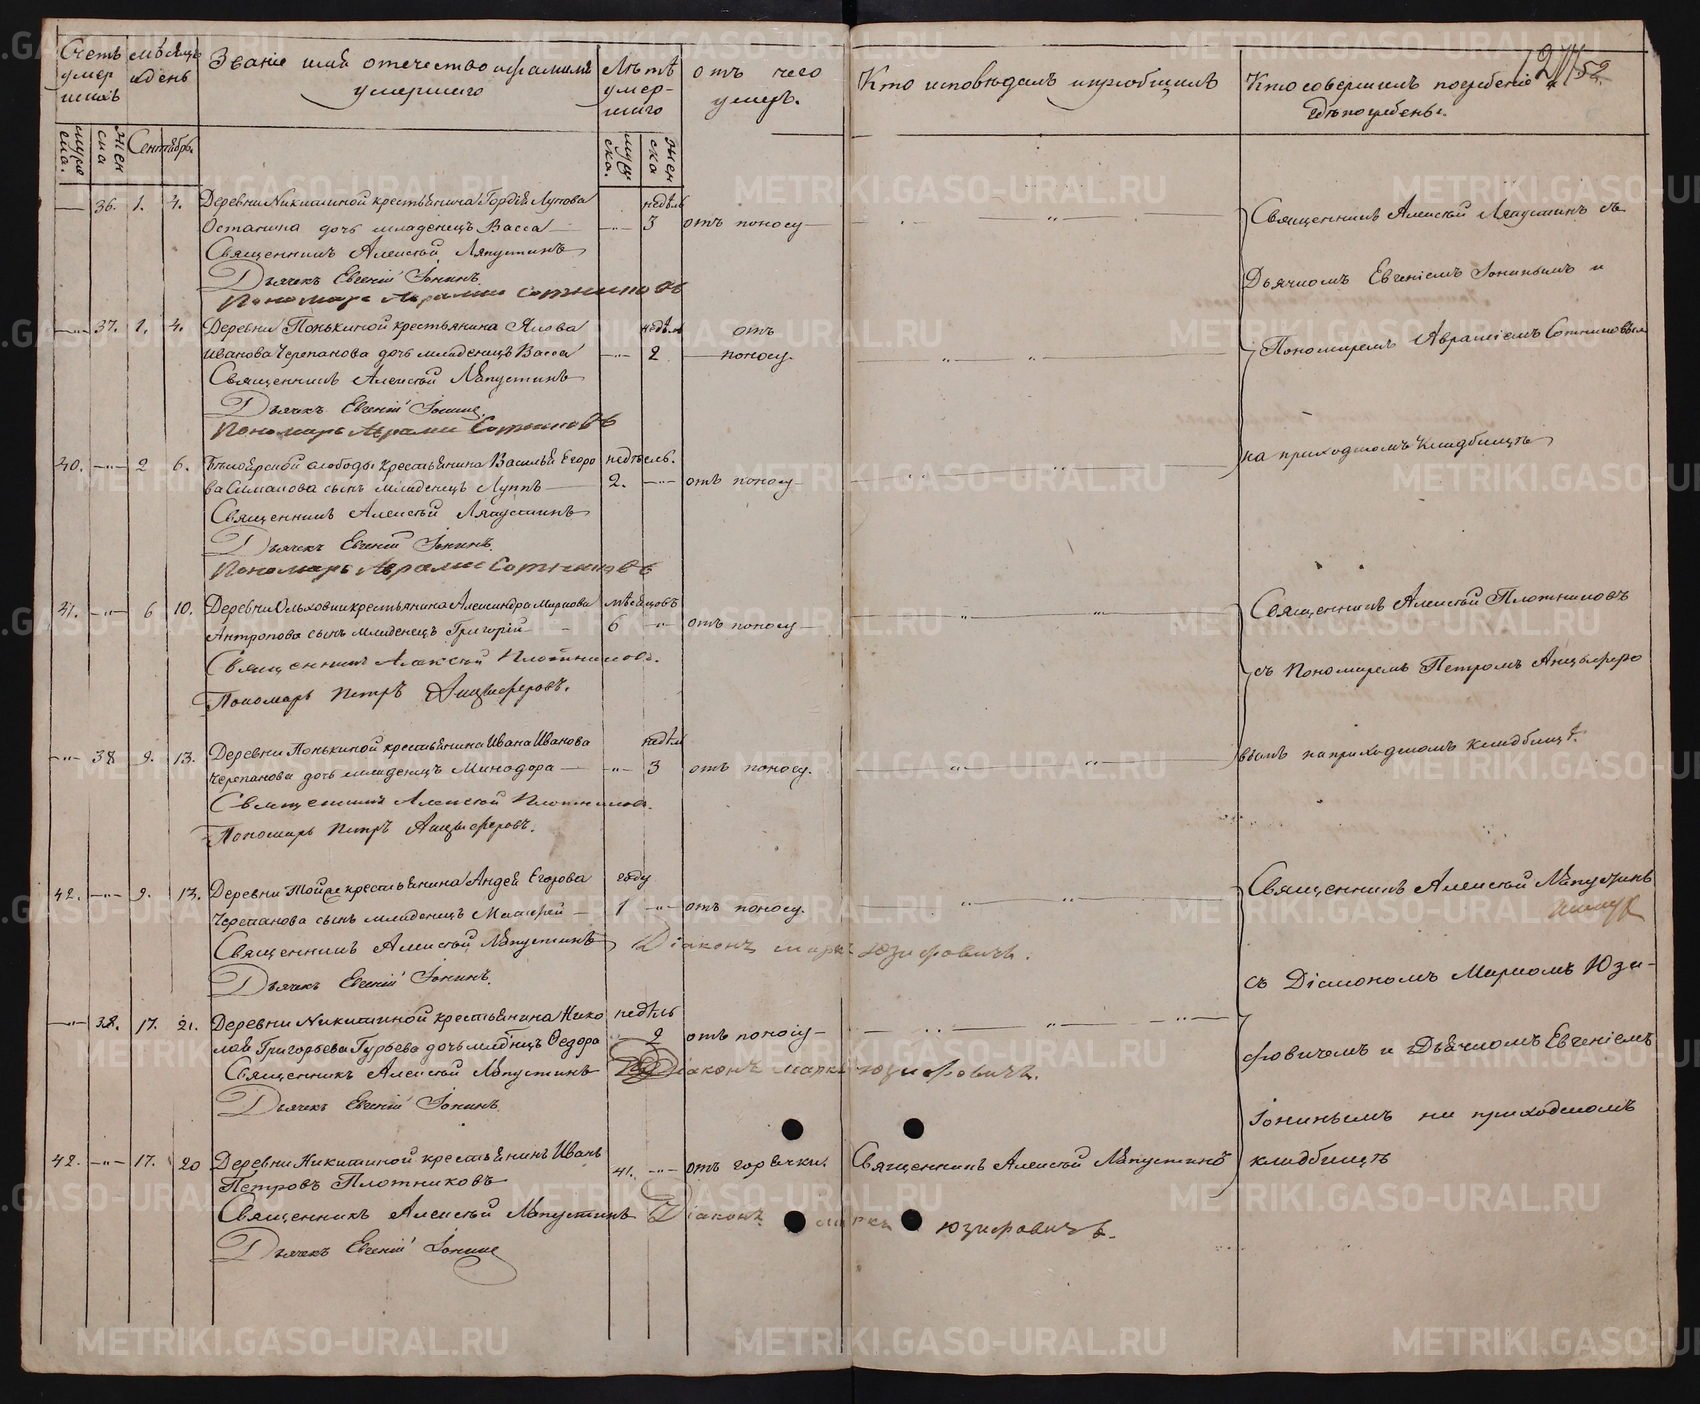 Счетъ умер шихъ
мужеска.
женска
мѣсяцъ и день
Сентябрь.
Званіе имя отечество и фамилія
умершаго
Лѣтъ умер-шаго
мужеска.
женска
отъ чего
умеръ.
Кто исповѣдалъ и приобщилъ
Кто совершилъ погребеніе и
гдѣ погребены.
36. 1. 4. Деревни Никитиной крестьянина Гордѣя Лупова недѣль
Останина дочь младенецъ Васса 3 отъ поносу
Священникъ Алексѣй Ляпустинъ
Дьячекъ Евгеній Іонинъ.
Пономарь Аврамій Сотниковъ
37. 1. 4. Деревни Понькиной крестьянина Якова недѣль отъ
Иванова Черепанова дочь младенецъ Васса 2 поносу.
Священникъ Алексѣй Ляпустинъ
Дьячекъ Евгеній Іонинъ.
Пономарь Аврамій Сотниковъ
40. 2 6. Бѣлоярской слободы крестьянина Василья Егоро недѣль.
ва Симанова сынъ младенецъ Луппъ 2. отъ поносу
Священникъ Алексѣй Ляпустинъ
Дьячекъ Евгеній Іонинъ.
Пономарь Аврамій Сотниковъ
Священникъ Алексѣй Ляпустинъ съ
Дьячкомъ Евгеніемъ Іонинымъ и
Пономаремъ Авраміемъ Сотниковым
на приходскомъ кладбищѣ
41. 6 10. Деревни Ольховки крестьянина Александра Маркова мѣсяцовъ
Антропова сынъ младенецъ Григорій 6 отъ поносу
Священникъ Алексѣй Плотниковъ.
Пономарь Петръ Анцыферовъ.
38 9. 13. Деревни Понькиной крестьянина Ивана Иванова недѣль
Черепанова дочь младенецъ Минодора 3 отъ поносу.
Священникъ Алексѣй Плотниковъ.
Пономарь Петръ Анцыферовъ.
Священникъ Алексѣй Плотниковъ
съ Пономаремъ Петромъ Анцыферо
вымъ на приходскомъ кладбищѣ.
42. 9. 13. Деревни Андрея Егорова году
Черепанова сынъ младенецъ 1 отъ поносу.
Священникъ Алексѣй Ляпустинъ Діаконъ Маркъ Юзифовичъ.
Дьячекъ Евгеній Іонинъ.
38. 17. 21. Деревни Никитиной крестьянина Нико недѣль
лая Григорьева Гурьева дочь младенецъ Ѳедора 2 отъ поносу
Священникъ Алексѣй Ляпустинъ Діаконъ Маркъ Юзифовичъ.
Дьячекъ Евгеній Іонинъ.
42. 17. 20 Деревни Никитиной крестьянинъ Иванъ 41. отъ горячки. Священникъ Алексѣй Ляпустинъ
Петровъ Плотниковъ
Священникъ Алексѣй Ляпустинъ Діаконъ Маркъ Юзифовичъ.
Дьячекъ Евгеній Іонинъ
Священникъ Алексѣй Ляпустинъ
съ Діакономъ Маркомъ Юзи-
фовичемъ и Дьячкомъ Евгеніемъ
Іонинымъ на приходскомъ
кладбищѣ
METRIKI.GASO-URAL.RU